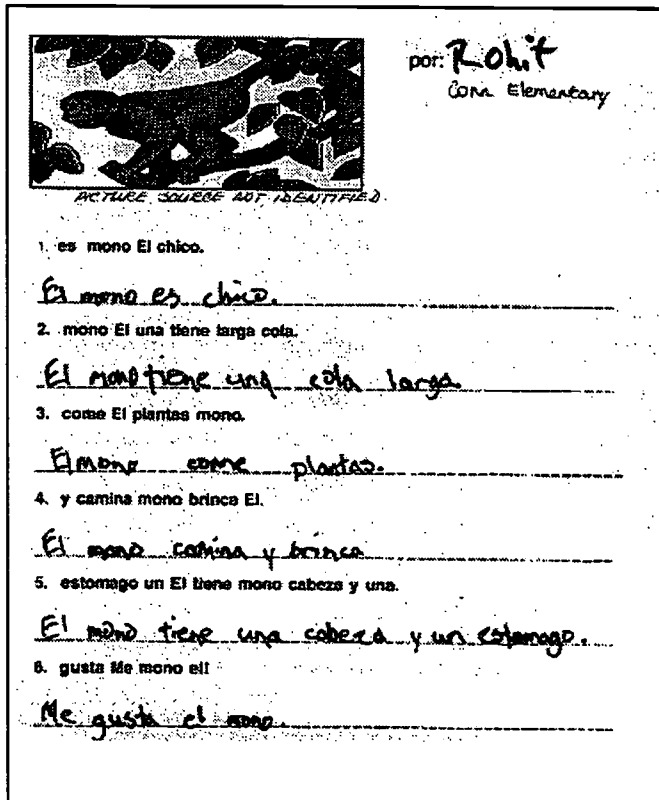 por: Rohit
Corr Elementary
PICTURE SOURCE NOT IDENTIFIED
1. es mono El chico.
El mono es chico.
2. mono El una tiene larga cola.
El mono tiene una cola larga.
3. come El plantas mono.
El mono come plantas.
4. y camina mono brinca El.
El mono camina y brinca
5. estomago un El tiene mono cabeza y una.
El mono tiene una cabeza y un estamago.
6. gusta Me mono el!
Me gusta el mono.